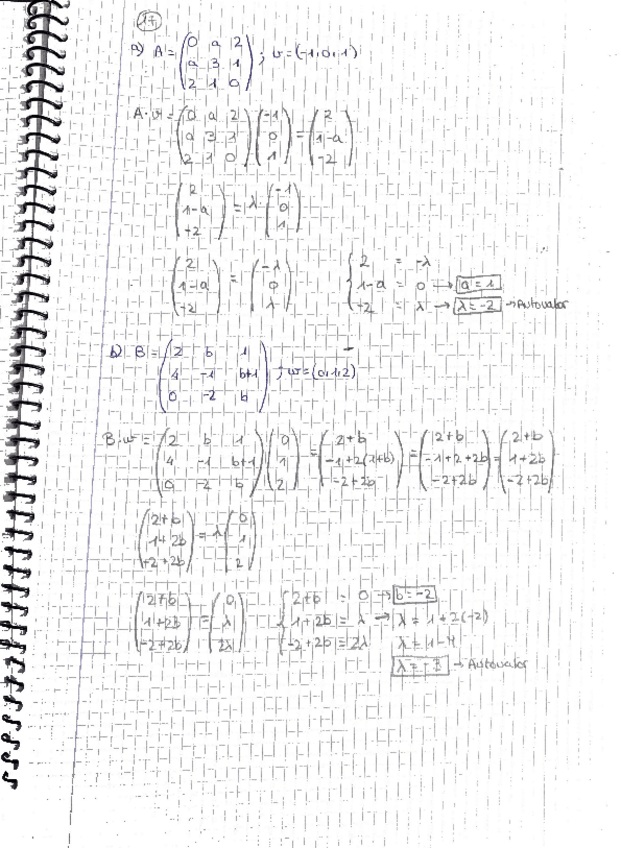 17
a) A = (0 a 2; a 3 1; 2 1 0) ; v = (-1, 0, 1)
A · v = (0 a 2; a 3 1; 2 1 0) (-1; 0; 1) = (2; 1-a; -2)
(2; 1-a; -2) = λ · (-1; 0; 1)
(2; 1-a; -2) = (-λ; 0; λ)
{ 2 = -λ
1-a = 0 → a = 1
-2 = λ → λ = -2 → Autovalor
b) B = (2 b 1; 4 -1 b+1; 0 -2 b) ; w = (0, 1, 2)
B · w = (2 b 1; 4 -1 b+1; 0 -2 b) (0; 1; 2) = (2+b; -1+2(1+b); -2+2b) = (2+b; -1+2+2b; -2+2b) = (2+b; 1+2b; -2+2b)
(2+b; 1+2b; -2+2b) = λ (0; 1; 2)
(2+b; 1+2b; -2+2b) = (0; λ; 2λ)
{ 2+b = 0 → b = -2
1+2b = λ → λ = 1+2(-2)
-2+2b = 2λ λ = 1-4
λ = -3 → Autovalor